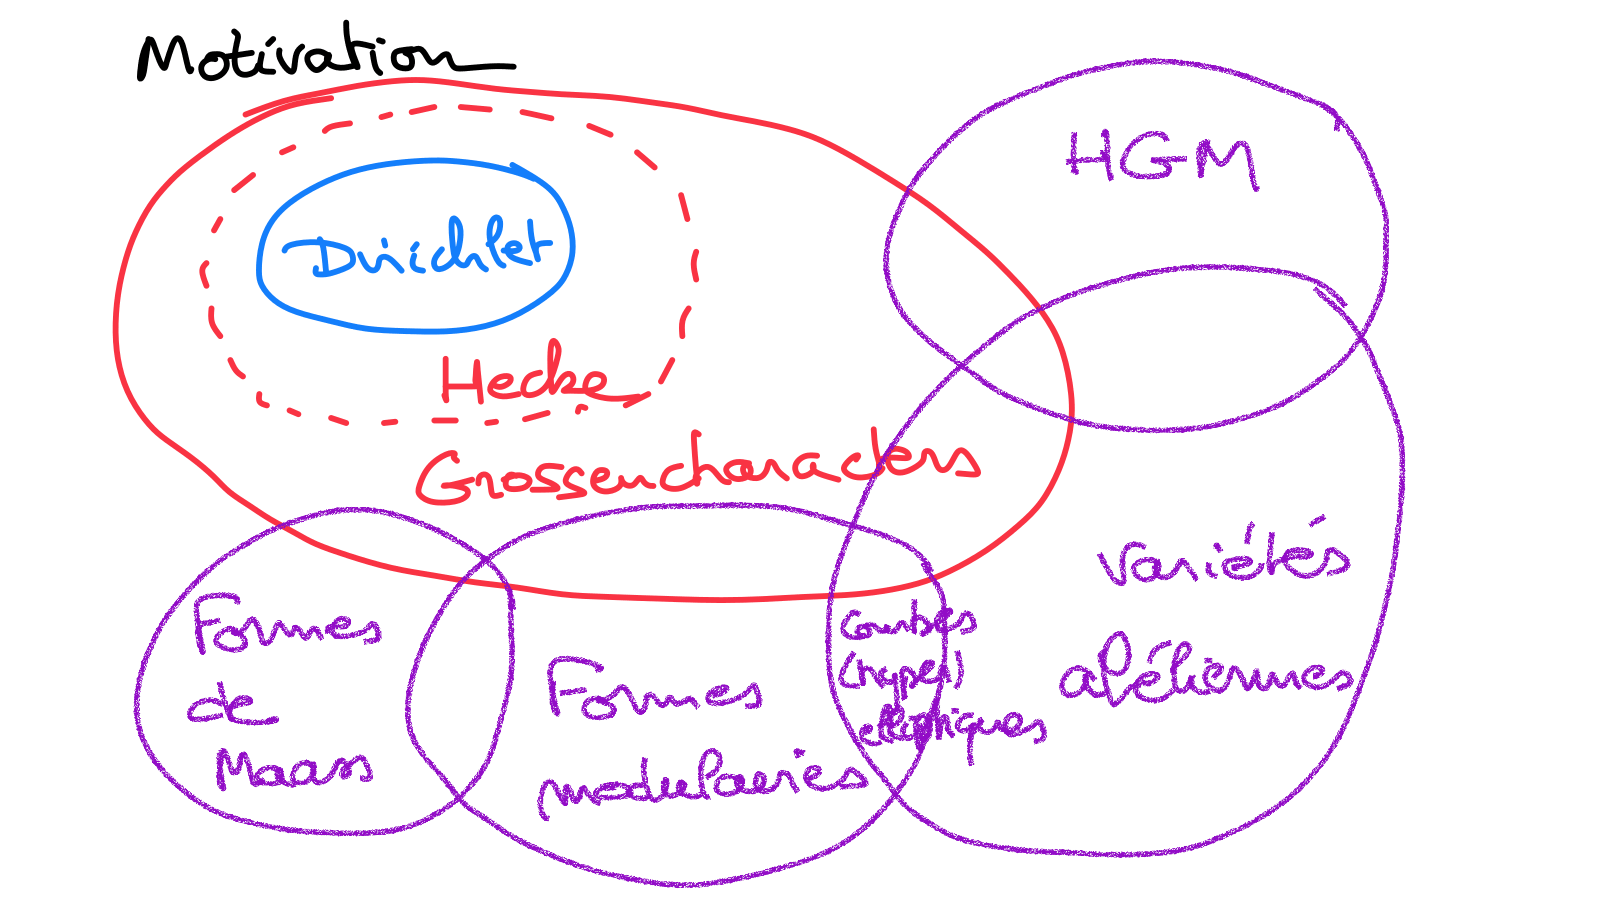 Motivation
HGM
Dirichlet
Hecke
Grossencharacters
variétés
abéliennes
Courbes
(hyper)
elliptiques
Formes
de
Maass
Formes
modulaires